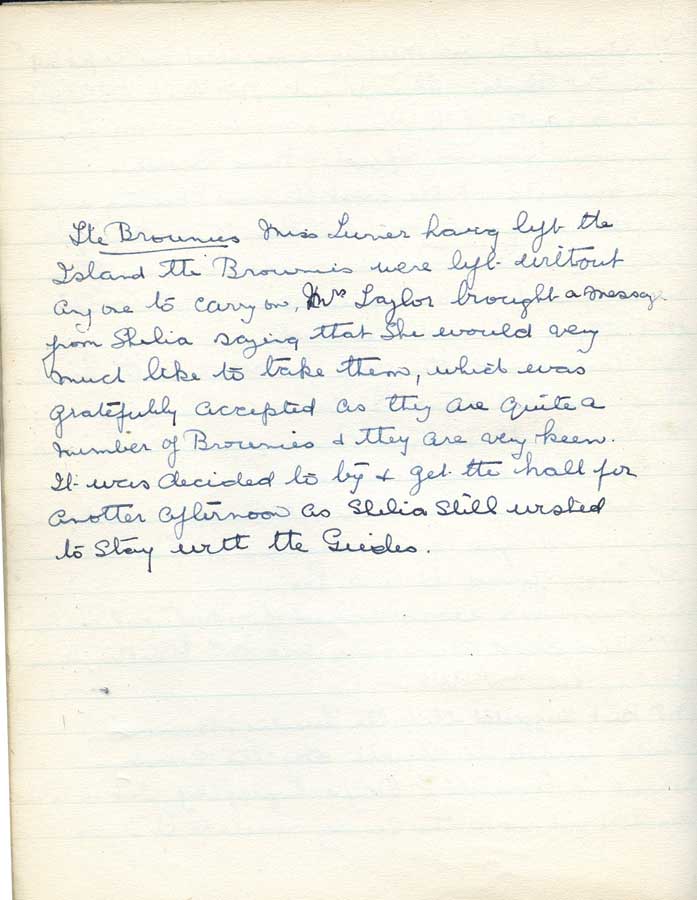 The Brownies Miss Turner havg left the
Island the Brownies were left without
any one to carry on, Mrs Taylor brought a message
from Shelia saying that She would very
much like to take them, which was
gratefully accepted as they are quite a
number of Brownies & they are very keen.
It was decided to try & get the hall for
another afternoon as Shelia Still wished
to Stay with the Guides.